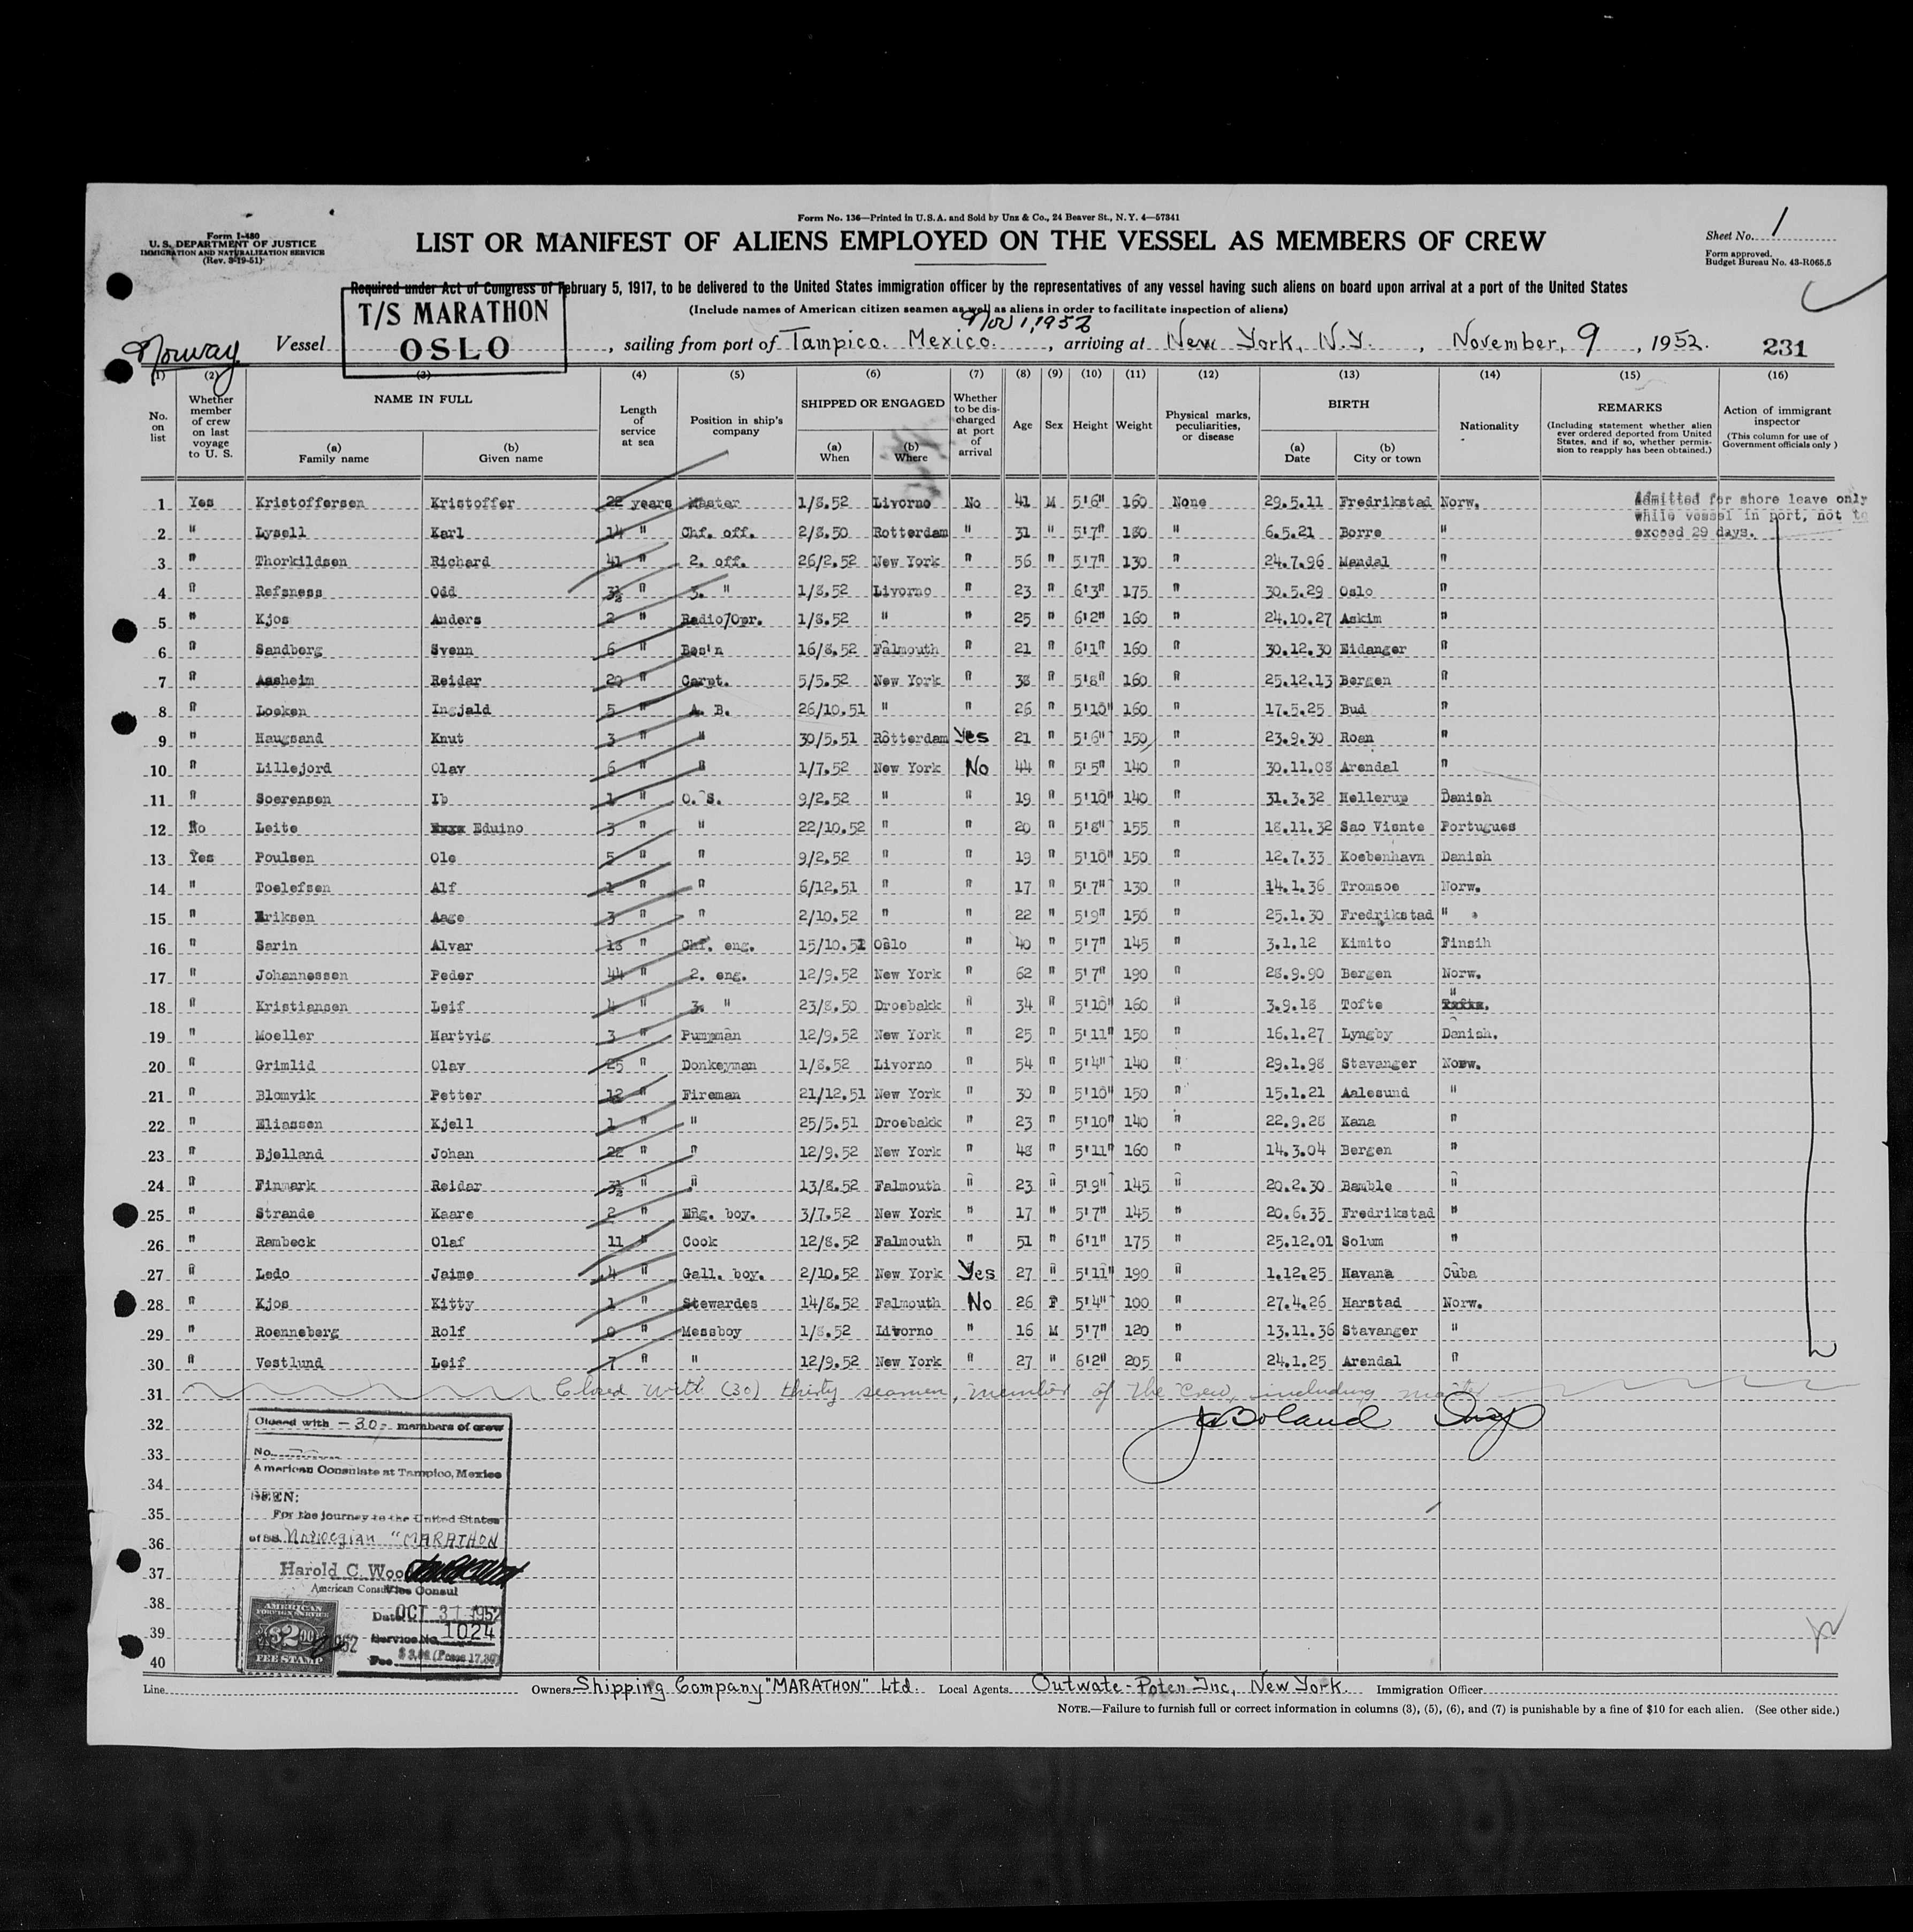 Form No. 136—Printed in U.S.A. and Sold by Unz & Co., 24 Beaver St., N.Y. 4—57341
Form I-480
U. S. DEPARTMENT OF JUSTICE
IMMIGRATION AND NATURALIZATION SERVICE
(Rev. 3-19-51)
LIST OR MANIFEST OF ALIENS EMPLOYED ON THE VESSEL AS MEMBERS OF CREW
Sheet No. 1
Form approved.
Budget Bureau No. 43-R065.5
Required under Act of Congress of February 5, 1917, to be delivered to the United States immigration officer by the representatives of any vessel having such aliens on board upon arrival at a port of the United States
(Include names of American citizen seamen as well as aliens in order to facilitate inspection of aliens)
Nov 1, 1952
Norway Vessel T/S MARATHON OSLO, sailing from port of Tampico. Mexico., arriving at New York, N.Y., November, 9, 1952. 231
(1) (2) (3) (4) (5) (6) (7) (8) (9) (10) (11) (12) (13) (14) (15) (16)
No. on list
Whether member of crew on last voyage to U. S.
NAME IN FULL
(a) Family name
(b) Given name
Length of service at sea
Position in ship's company
SHIPPED OR ENGAGED
(a) When
(b) Where
Whether to be discharged at port of arrival
Age
Sex
Height
Weight
Physical marks, peculiarities, or disease
BIRTH
(a) Date
(b) City or town
Nationality
REMARKS
(Including statement whether alien ever ordered deported from United States, and if so, whether permission to reapply has been obtained.)
Action of immigrant inspector
(This column for use of Government officials only)
1 Yes Kristoffersen Kristoffer 22 years Master 1/8.52 Livorno No 41 M 5'6" 160 None 29.5.11 Fredrikstad Norw.
Admitted for shore leave only
while vessel in port, not to
exceed 29 days.
2 " Lysell Karl 14 " Chf. off. 2/8.50 Rotterdam " 31 " 5'7" 180 " 6.5.21 Borre "
3 " Thorkildsen Richard 41 " 2. off. 26/2.52 New York " 56 " 5'7" 130 " 24.7.96 Mandal "
4 " Refsness Odd 3½ " 3. " 1/8.52 Livorno " 23 " 6'3" 175 " 30.5.29 Oslo "
5 " Kjos Anders 2 " Radio/Opr. 1/8.52 " " 25 " 6'2" 160 " 24.10.27 Askim "
6 " Sandberg Svenn 6 " Bos'n 16/8.52 Falmouth " 21 " 6'1" 160 " 30.12.30 Eidanger "
7 " Aasheim Reidar 20 " Carpt. 5/5.52 New York " 38 " 5'8" 160 " 25.12.13 Bergen "
8 " Loeken Ingjald 5 " A. B. 26/10.51 " " 26 " 5'10" 160 " 17.5.25 Bud "
9 " Haugsand Knut 3 " " 30/5.51 Rotterdam Yes 21 " 5'6" 150 " 23.9.30 Roan "
10 " Lillejord Olav 6 " " 1/7.52 New York No 44 " 5'5" 140 " 30.11.08 Arendal "
11 " Soerensen Ib 1 " O. S. 9/2.52 " " 19 " 5'10" 140 " 31.3.32 Hellerup Danish
12 No Leite Eduino 3 " " 22/10.52 " " 20 " 5'8" 155 " 18.11.32 Sao Visnte Portugues
13 Yes Poulsen Ole 5 " " 9/2.52 " " 19 " 5'10" 150 " 12.7.33 Koebenhavn Danish
14 " Toelefsen Alf 1 " " 6/12.51 " " 17 " 5'7" 130 " 14.1.36 Tromsoe Norw.
15 " Eriksen Aage 3 " " 2/10.52 " " 22 " 5'9" 150 " 25.1.30 Fredrikstad "
16 " Sarin Alvar 18 " Chf. eng. 15/10.51 Oslo " 40 " 5'7" 145 " 3.1.12 Kimito Finsih
17 " Johannessen Peder 44 " 2. eng. 12/9.52 New York " 62 " 5'7" 190 " 28.9.90 Bergen Norw.
18 " Kristiansen Leif 4 " 3. " 23/8.50 Droebakk " 34 " 5'10" 160 " 3.9.18 Tofte "
19 " Moeller Hartvig 3 " Pumpman 12/9.52 New York " 25 " 5'11" 150 " 16.1.27 Lyngby Danish.
20 " Grimlid Olav 25 " Donkeyman 1/8.52 Livorno " 54 " 5'4" 140 " 29.1.98 Stavanger Norw.
21 " Blomvik Petter 12 " Fireman 21/12.51 New York " 30 " 5'10" 150 " 15.1.21 Aalesund "
22 " Eliassen Kjell 1 " " 25/5.51 Droebakk " 23 " 5'10" 140 " 22.9.28 Kana "
23 " Bjelland Johan 22 " " 12/9.52 New York " 48 " 5'11" 160 " 14.3.04 Bergen "
24 " Finmark Reidar 3½ " " 13/8.52 Falmouth " 23 " 5'9" 145 " 20.2.30 Bamble "
25 " Strande Kaare 2 " Eng. boy. 3/7.52 New York " 17 " 5'7" 145 " 20.6.35 Fredrikstad "
26 " Rambeck Olaf 11 " Cook 12/8.52 Falmouth " 51 " 6'1" 175 " 25.12.01 Solum "
27 " Ledo Jaime 4 " Gall. boy. 2/10.52 New York Yes 27 " 5'11" 190 " 1.12.25 Havana Cuba
28 " Kjos Kitty 1 " Stewardes 14/8.52 Falmouth No 26 F 5'4" 100 " 27.4.26 Harstad Norw.
29 " Roenneberg Rolf 0 " Messboy 1/8.52 Livorno " 16 M 5'7" 120 " 13.11.36 Stavanger "
30 " Vestlund Leif 7 " " 12/9.52 New York " 27 " 6'2" 205 " 24.1.25 Arendal "
31 Closed with (30) thirty seamen, member of the crew, including master
32
33
34
35
36
37
38
39
40
Closed with -30- members of crew
No.
American Consulate at Tampico, Mexico
SEEN:
For the journey to the United States
of SS. Norwegian "MARATHON
Harold C. Woo
American Consul Vice Consul
Date OCT 31 1952
Service No. 1024
Fee $ 2.00 (Pesos 17.30)
AMERICAN
FOREIGN SERVICE
$2.00
FEE STAMP
Line Owners Shipping Company "MARATHON" Ltd. Local Agents Outwate-Poten Inc, New York. Immigration Officer
NOTE.—Failure to furnish full or correct information in columns (3), (5), (6), and (7) is punishable by a fine of $10 for each alien. (See other side.)